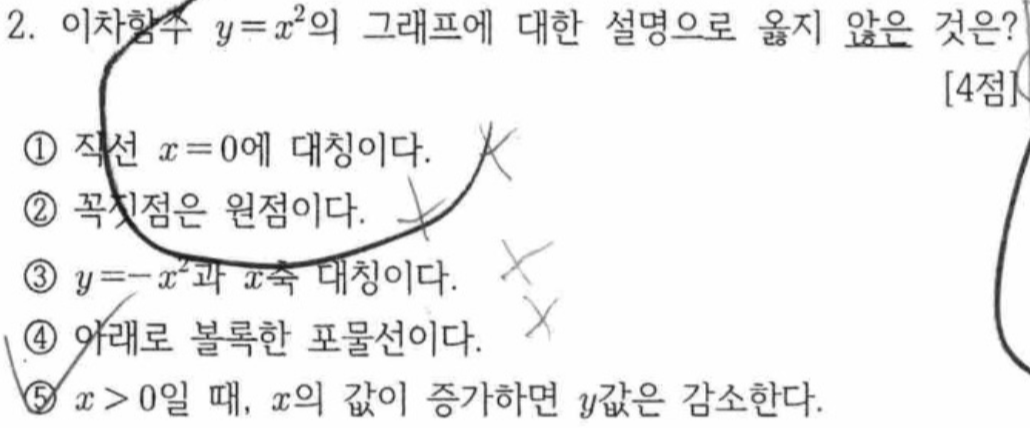 2. 이차함수 y=x²의 그래프에 대한 설명으로 옳지 않은 것은?
[4점]
① 직선 x=0에 대칭이다.
② 꼭짓점은 원점이다.
③ y=-x²과 x축 대칭이다.
④ 아래로 볼록한 포물선이다.
⑤ x>0일 때, x의 값이 증가하면 y값은 감소한다.